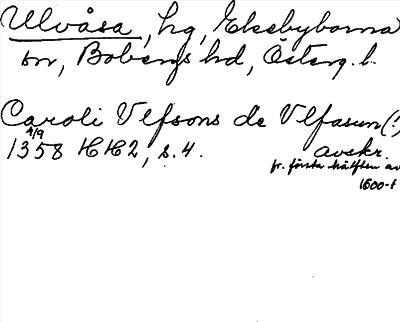 Ulvåsa, hg, Ekebyborna
sn, Bobergs hd, Österg. l.
Caroli Vlfsons de Vlfasun (!)
4/9
1358 HH2, s. 4. avskr.
fr. första hälften av
1600-t